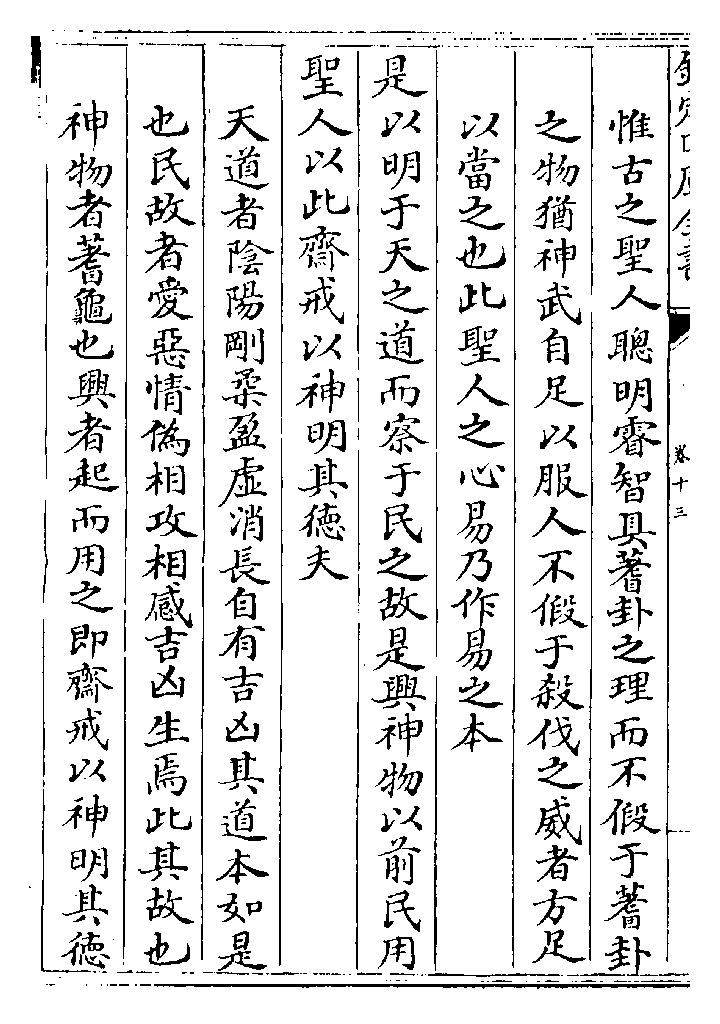 欽定四庫全書
卷十三
惟古之聖人聰明睿智具蓍卦之理而不假于蓍卦
之物猶神武自足以服人不假于殺伐之威者方足
以當之也此聖人之心易乃作易之本
是以明于天之道而察于民之故是興神物以前民用
聖人以此齋戒以神明其德夫
天道者陰陽剛柔盈虛消長自有吉凶其道本如是
也民故者愛惡情偽相攻相感吉凶生焉此其故也
神物者蓍龜也興者起而用之即齋戒以神明其德